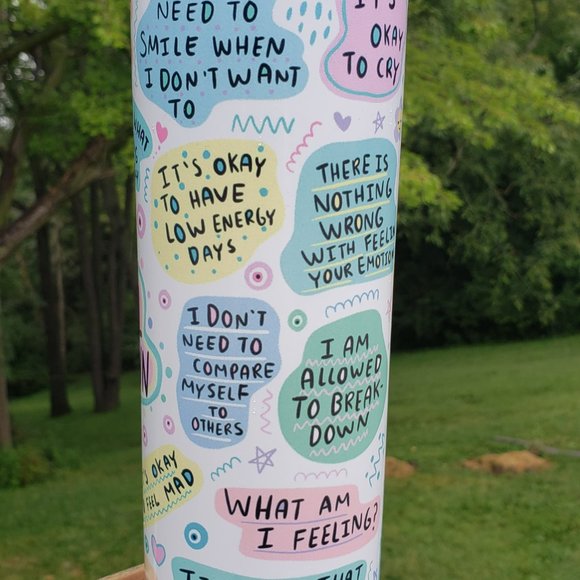 NEED TO
SMILE WHEN
I DON'T WANT
TO
IT'S
OKAY
TO CRY
WHAT
IT'S OKAY
TO HAVE
LOW ENERGY
DAYS
THERE IS
NOTHING
WRONG
WITH FEELIN
YOUR EMOTION
I DON'T
NEED TO
COMPARE
MYSELF
TO
OTHERS
I AM
ALLOWED
TO BREAK-
DOWN
N
OKAY
FEEL MAD
WHAT AM
I FEELING?
THAT